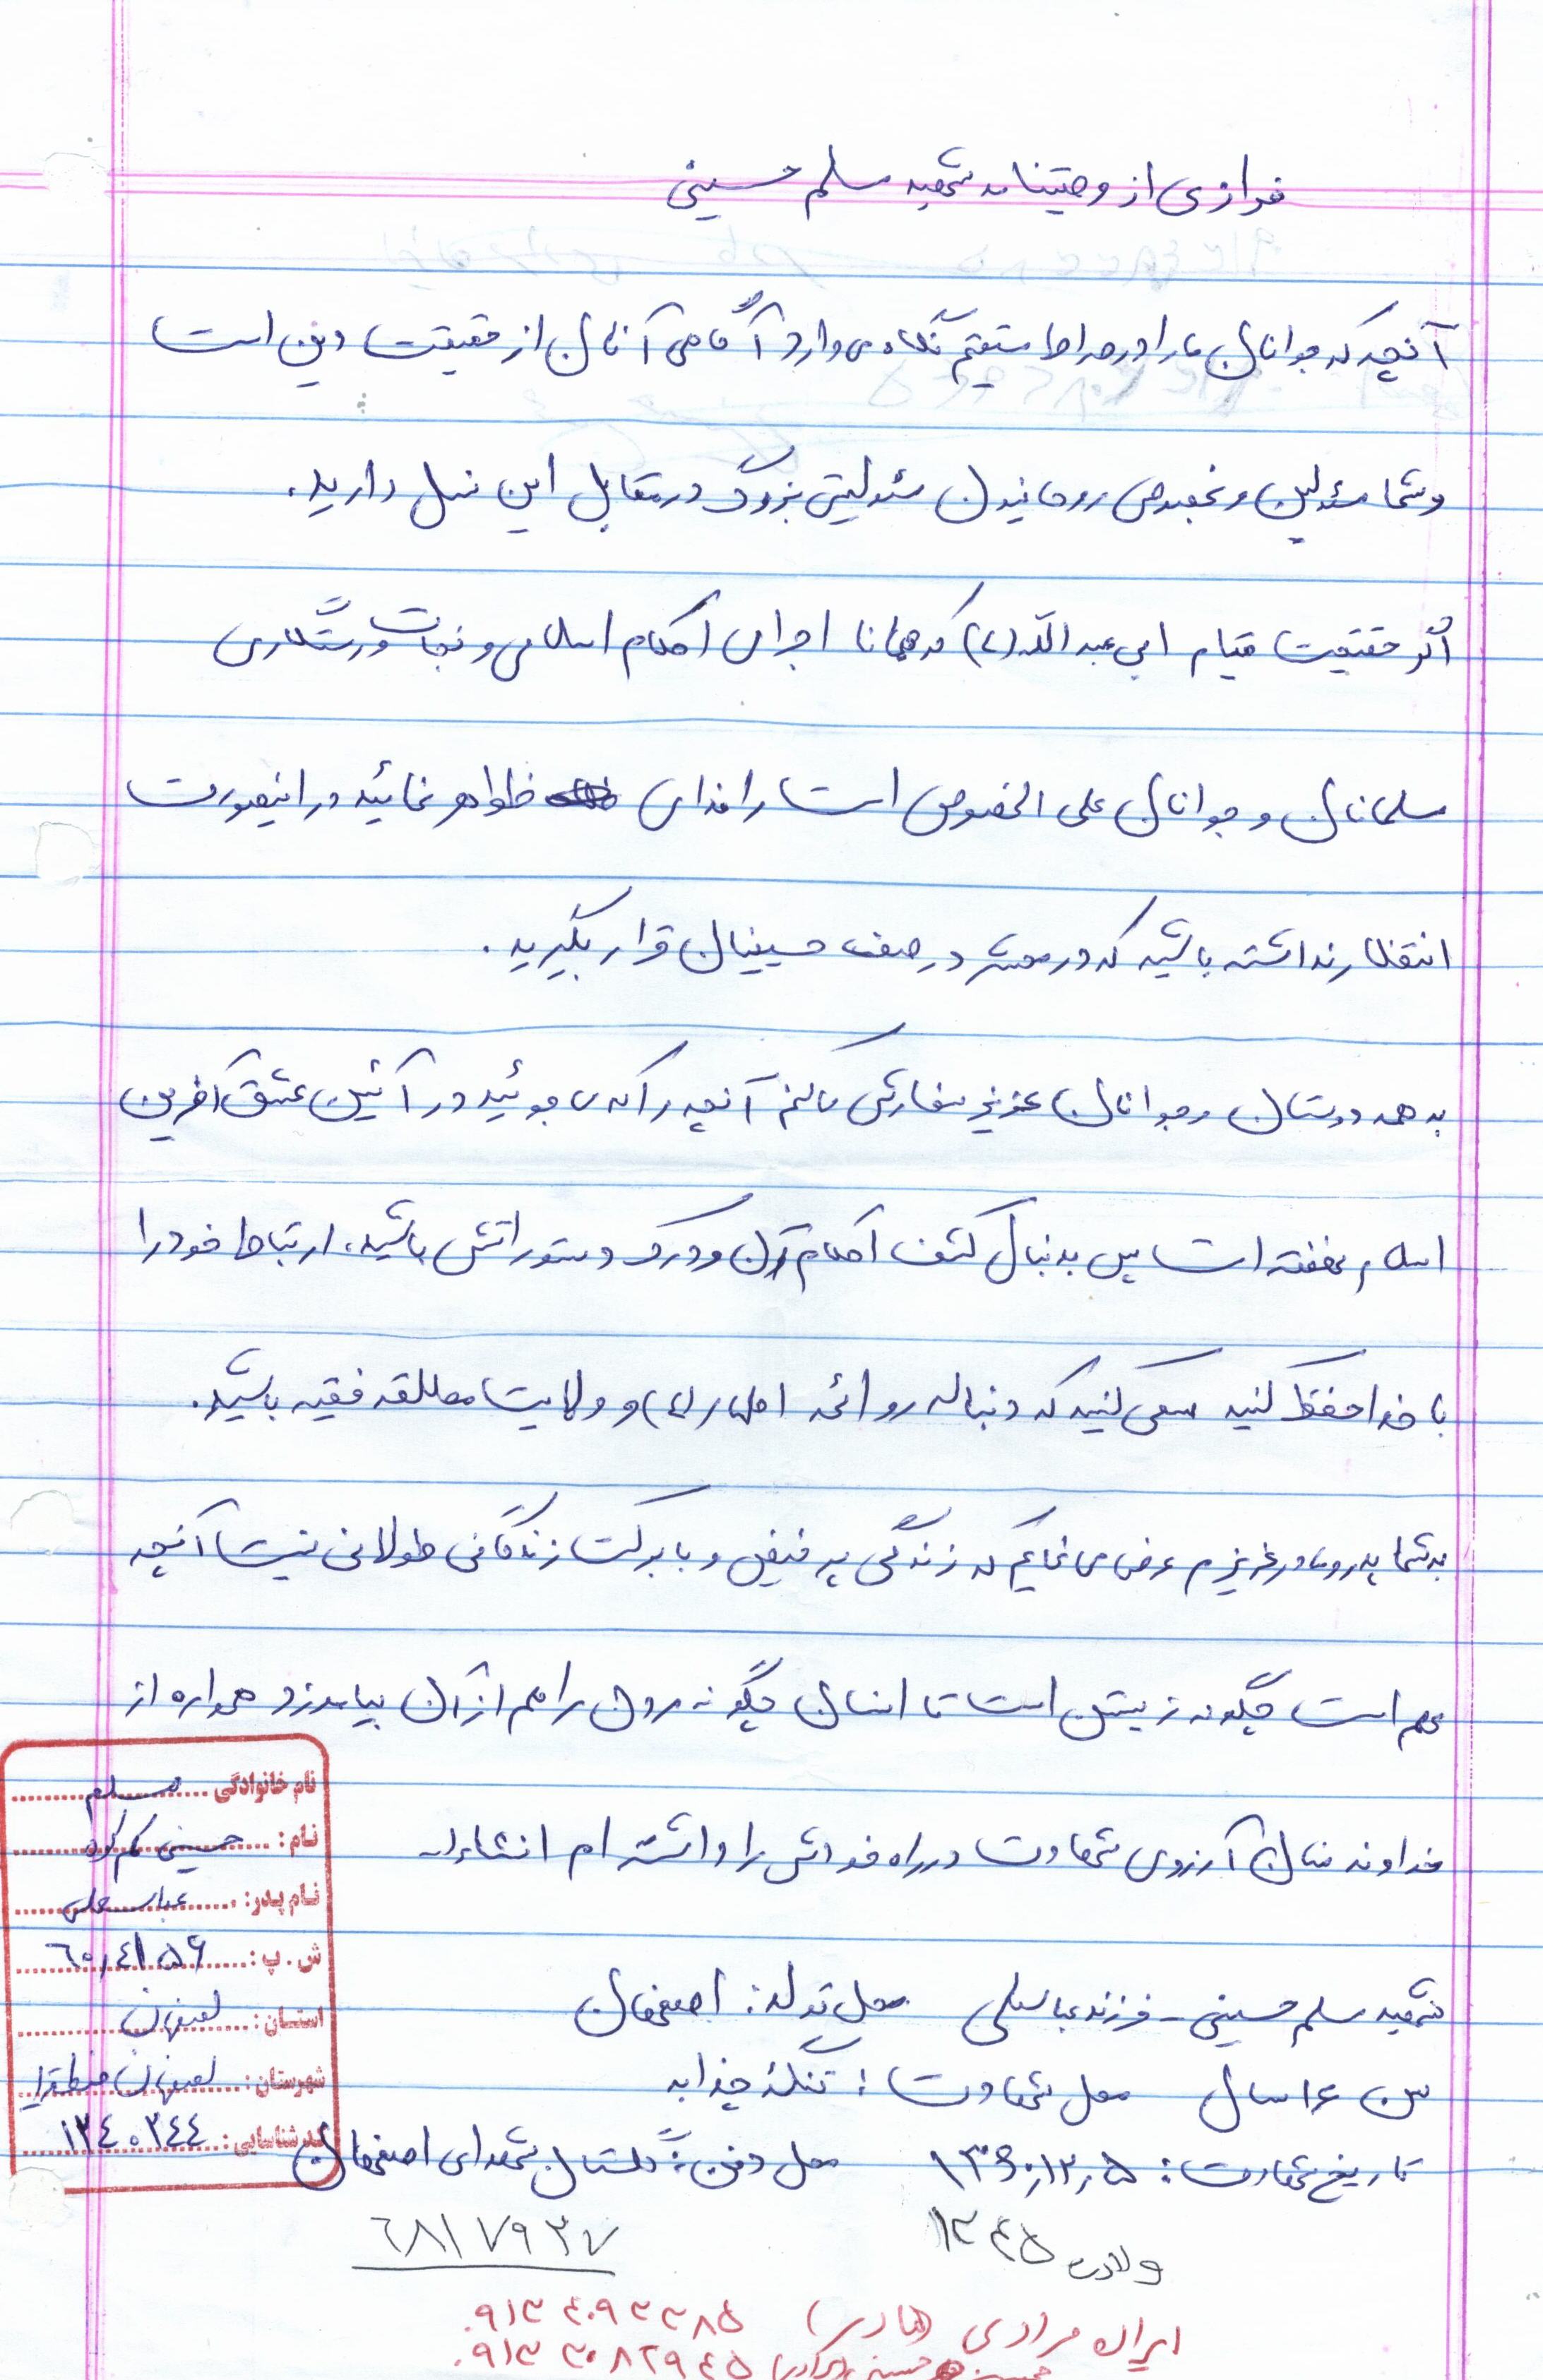 فرازی از وصیتنامه شهید مسلم حسینی
آنچه که جوانان ما را در صراط مستقیم نگاه می دارد آگاهی آنان از حقیقت دین است
و شما مسئولین و بخصوص روحانیون مسئولیتی بزرگ در مقابل این نسل دارید.
اگر حقیقت قیام ابی عبدالله (ع) که همانا اجرای احکام اسلامی و نجات و رستگاری
مسلمانان و جوانان علی الخصوص است را فدای ظواهر نمائید در اینصورت
انتظار نداشته باشید که در محشر در صف حسینیان قرار بگیرید.
به همه دوستان و جوانان عزیز سفارش می کنم آنچه را که می جوئید در آئین عشق آفرین
اسلام نهفته است پس بدنبال کشف احکام آن و درک دستوراتش باشید، ارتباط خود را
با خدا حفظ کنید سعی کنید که دنباله رو ائمه اطهار (ع) و ولایت مطلقه فقیه باشید.
به شما پدر و مادر عزیزم عرض می نمایم که زندگی پر فیض و با برکت زندگانی طولانی نیست آنچه
مهم است چگونه زیستن است تا انسان چگونه مردن را هم از آن بیاموزد و همواره از
خداوند منان آرزوی شهادت در راه خودش را داشته ام انشاءا...
شهید مسلم حسینی - فرزند عباسعلی محل تولد: اصفهان
سن ۱۶ سال محل شهادت: تنگه چذابه
تاریخ شهادت: ۱۳۶۰/۱۲/۵ محل دفن: گلستان شهدای اصفهان
ولادت ۱۳۴۵ ۶۸۱۷۹۳۷
ایران مرادی (مادر) ۰۹۱۳۴۰۹۳۳۸۵
حسینی ۰۹۱۳۳۰۸۲۹۴۵
نام خانوادگی مسلم
نام: حسینی
نام پدر: عباسعلی
ش.پ: ۶۰/۴۱۵۶
استان: اصفهان
شهرستان: اصفهان
کد شناسایی: ۱۲۴۰۲۴۴